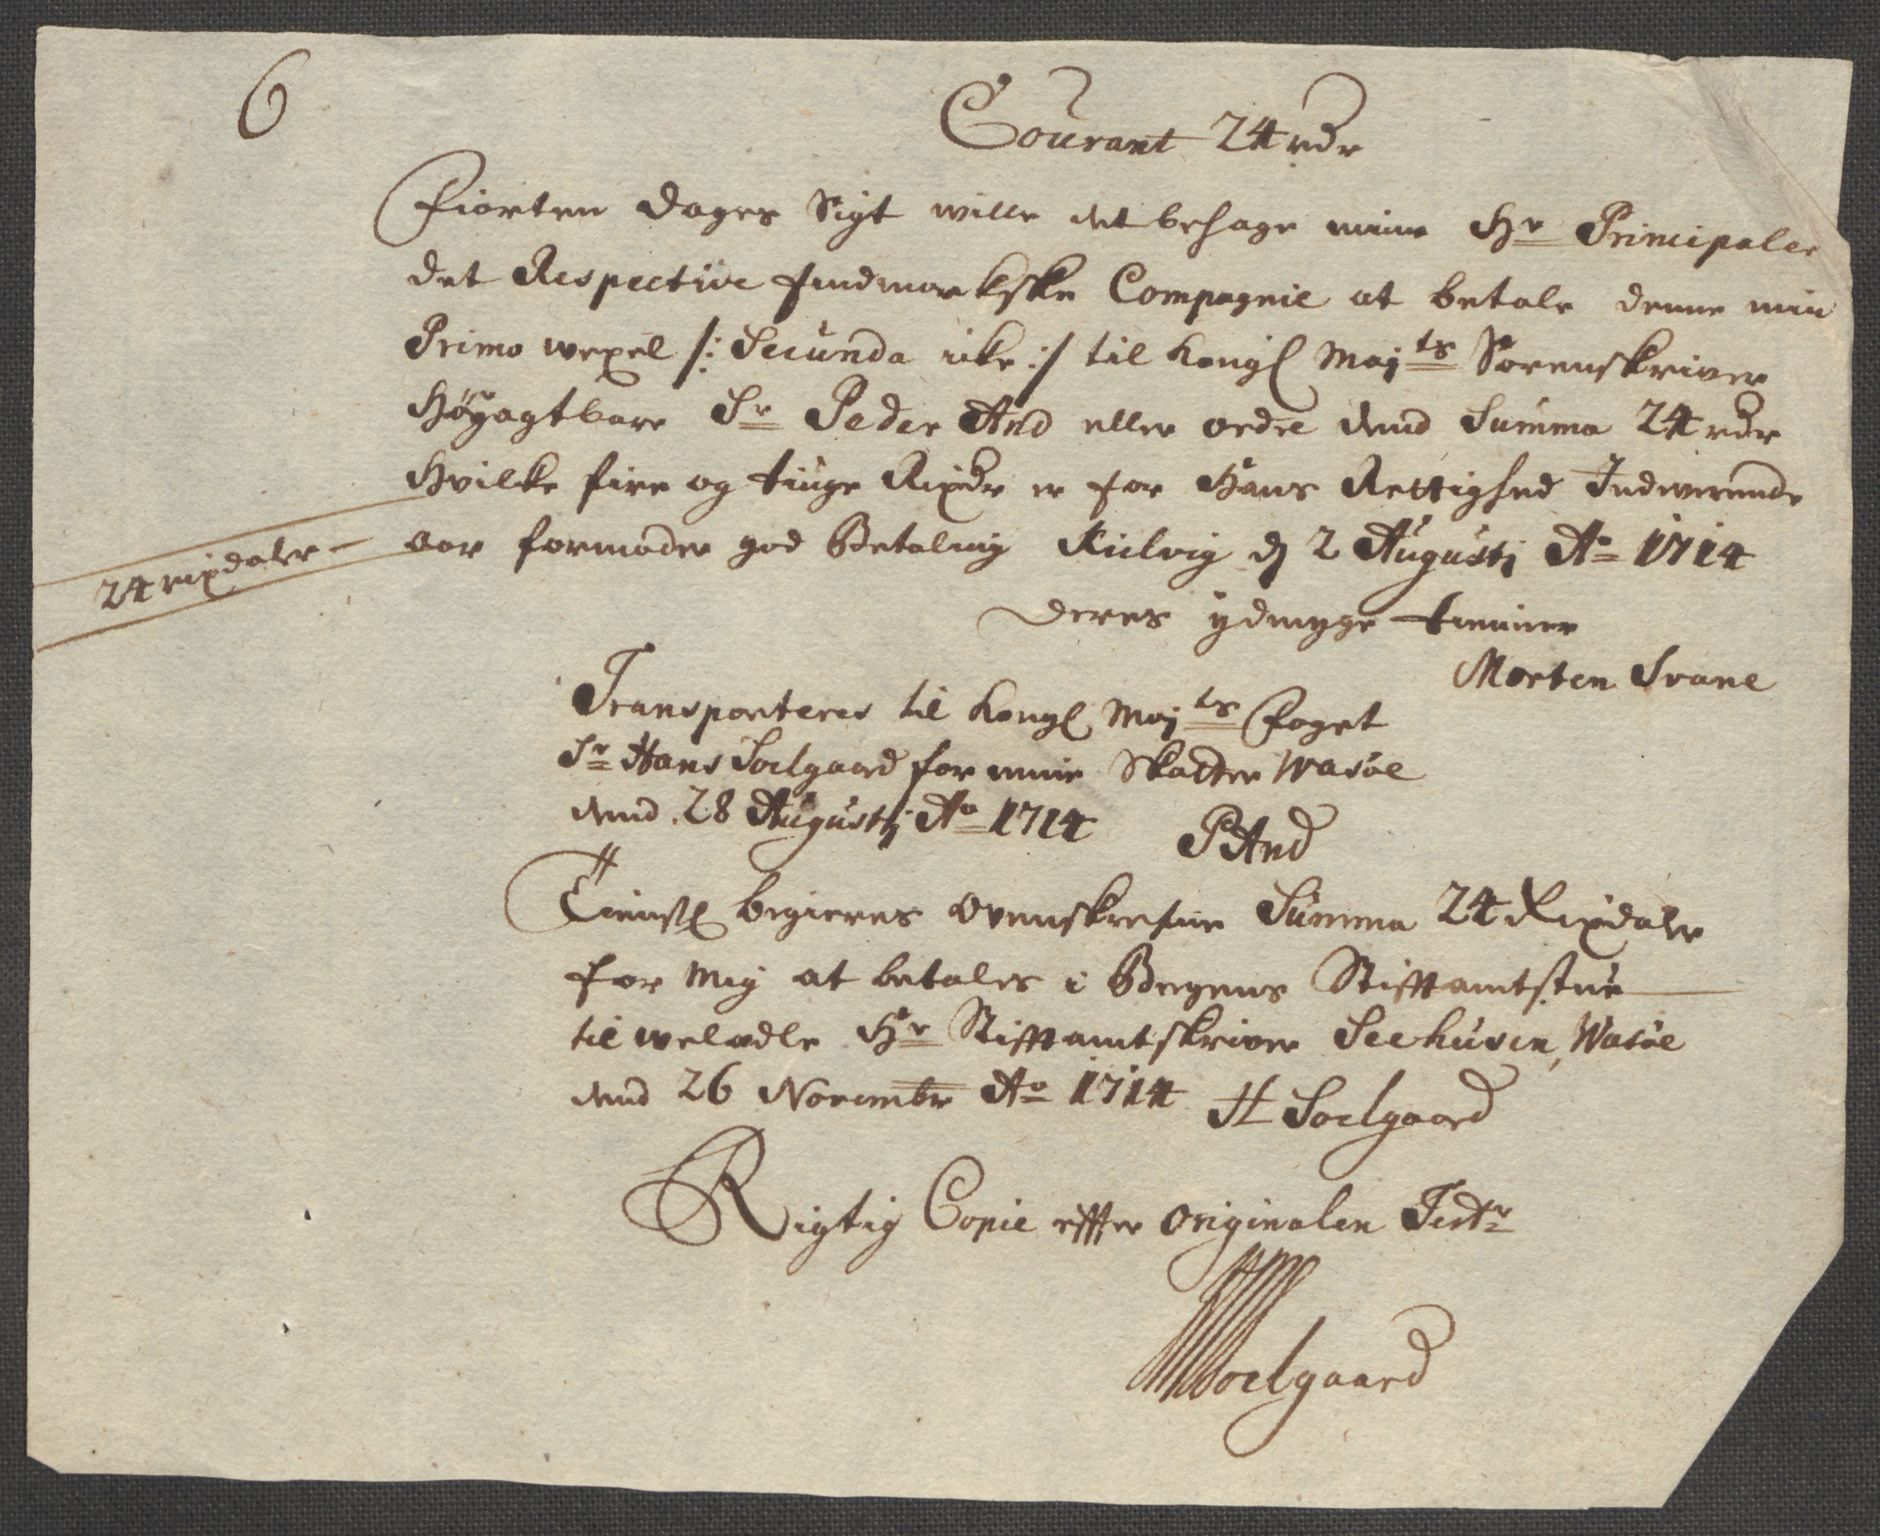 6
Courant 24 rdr
Fiorten Dages Sigt wille det behage mine Hr Principaler
det Respective findmarkske Compagnie at betale denne min
Primo wexel /: Secunda icke :/ til Kongl Majts Sorenskriver
Høyagtbare Sr Peder And eller ordre dend Summa 24 rdr
Hvilke fire og tiuge Rixdr er for Hans Rettighed Indwerende
24 rixdaler — aar formoder god Betaling Kielvig dj 2 Augustj Ao 1714
Deres ydmyge tienner
Morten Svane
Transporteres til Kongl Majts Foget
Sr Hans Soelgaard for mine Skatter Wasöe
dend 28 Augustj Ao 1714 PAnd
Tienstl begieres ovenskrefne Summa 24 Rixdaler
for mig at betales i Bergens Stifftamtstue
til welædle Hr Stifftamtskriver Seehusen, Wasöe
dend 26 Novembr Ao 1714 H Soelgaard
Rigtig Copie effter originalen Testr
HSoelgaard